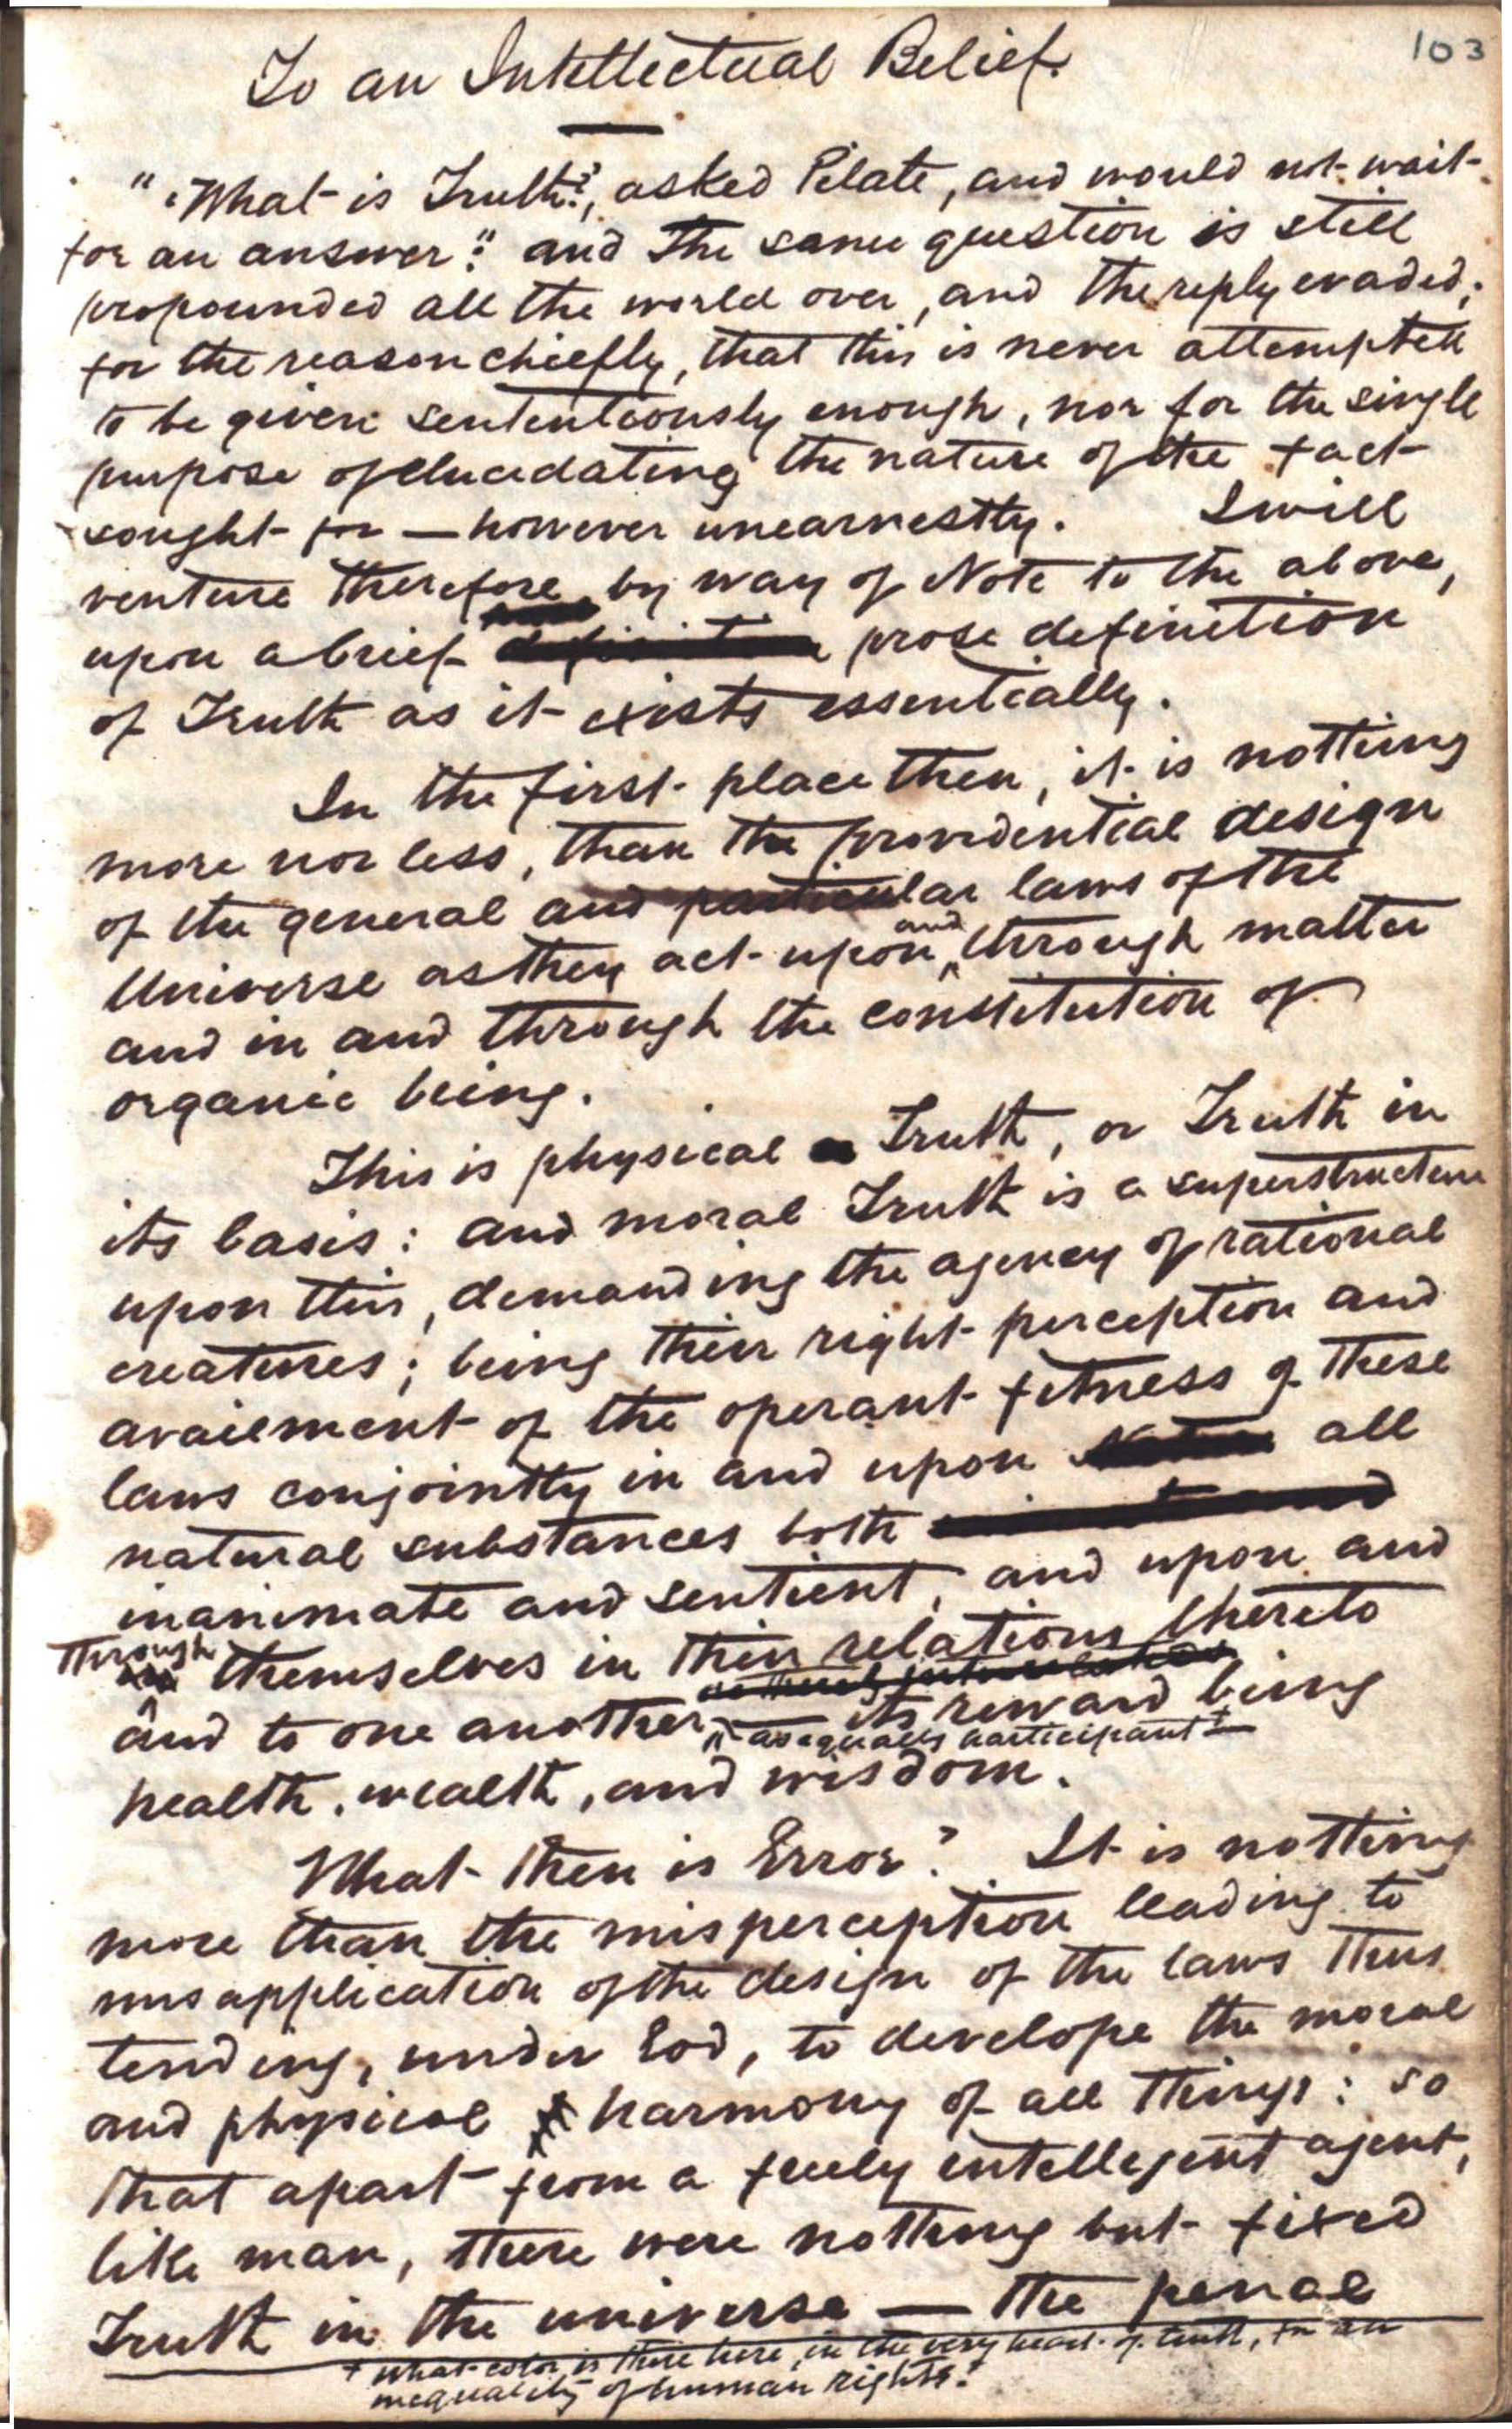 103
To an Intellectual Belief.
"'What is Truth?', asked Pilate, and would not wait
for an answer:" and the same question is still
propounded all the world over, and the reply evaded;
for the reason chiefly, that this is never attempted
to be given sententiously enough, nor for the single
purpose of elucidating the nature of the fact
sought for — however unearnestly. I will
venture therefore, by way of Note to the above,
upon a brief prose definition
of Truth as it exists essentially.
In the first place then, it is nothing
more nor less, than the providential design
of the general and particular laws of the
Universe as they act upon and through matter
and in and through the constitution of
organic being.
This is physical Truth, or Truth in
its basis: and moral Truth is a superstructure
upon this, demanding the agency of rational
creatures; being their right perception and
availment of the operant fitness of these
laws conjointly in and upon all
natural substances both
inanimate and sentient, and upon and
through themselves in their relations thereto
and to one another, — as equally participant + — its reward being
health, wealth, and wisdom.
What then is Error? It is nothing
more than the misperception leading to
misapplication of the design of the laws thus
tending, under God, to develope the moral
and physical harmony of all things: so
that apart from a freely intellegent agent,
like man, there were nothing but fixed
Truth in the universe — the penal
+ What color is there here, in the very heart of truth, for an
inequality of human rights!